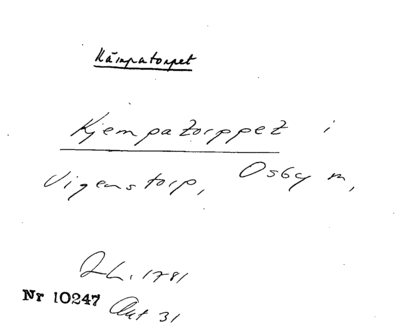 Kämpatorpet
Kjempatorppet i
Vigenstorp, Osby m,
JL. 1781
Nr 10247 Akt 31